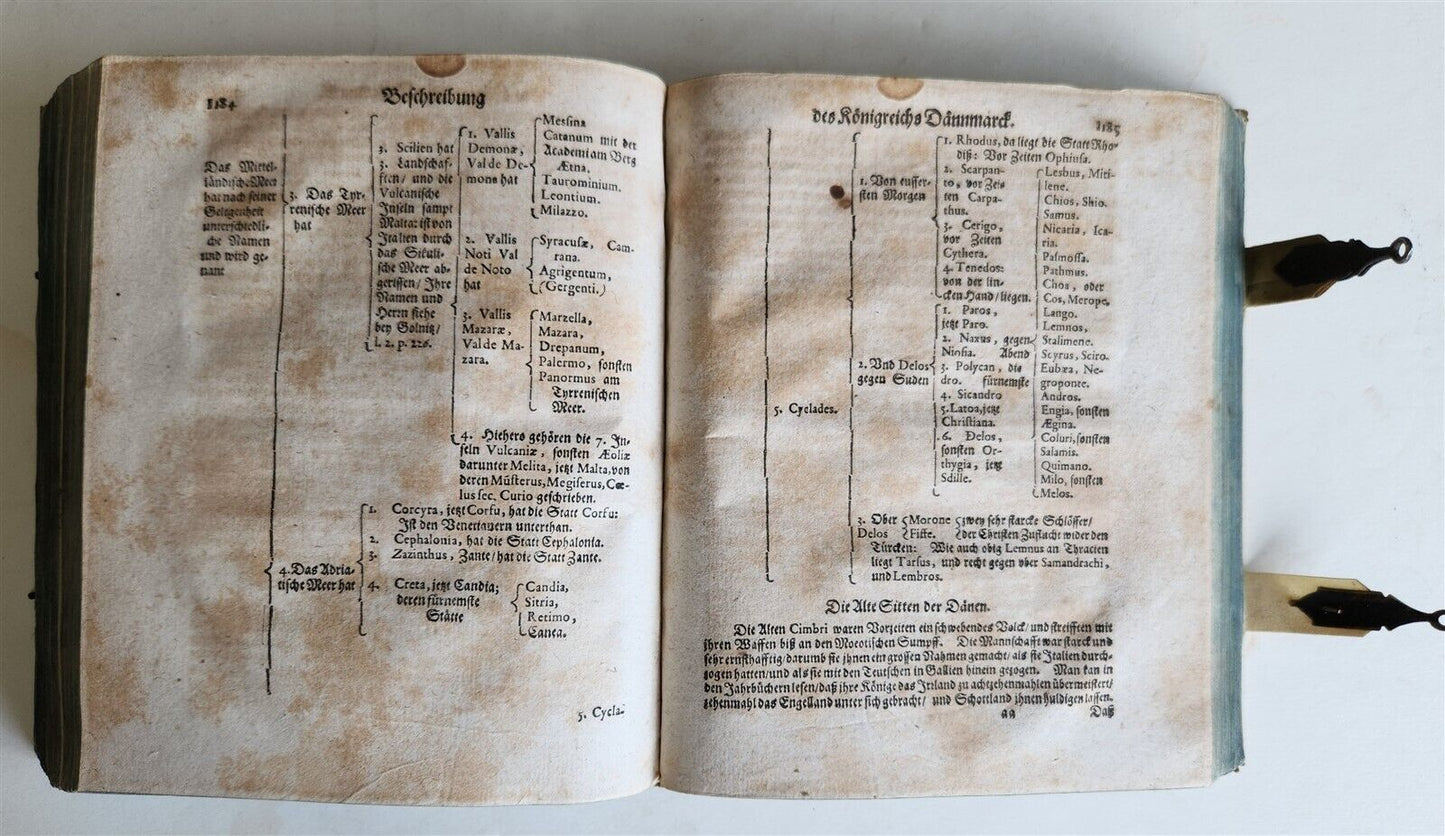 1184
Beschreibung
Das Mittel-
ländische Meer
hat nach seiner
Gelegenheit
unterschiedli-
che Namen
und wird ge-
nant
3. Das Tyr-
renische Meer
hat
3. Scilien hat
3. Landschaf-
ften/ und die
Vulcanische
Inseln sampt
Malta: ist von
Italien durch
das Sikuli-
sche Meer ab-
gerissen/ Ihre
Namen und
Herrn siehe
bey Golnitz/
l. 2. p. 226.
1. Vallis
Demonæ,
Val de De-
mone hat
Messina
Catanum mit der
Academiam Berg
Ætna.
Taurominium.
Leontium.
Milazzo.
2. Vallis
Noti Val
de Noto
hat
Syracusæ, Cam-
rana.
Agrigentum,
(Gergenti.)
3. Vallis
Mazaræ,
Val de Ma-
zara.
Marzella,
Mazara,
Drepanum,
Palermo, sonsten
Panormus am
Tyrrenischen
Meer.
4. Hiehero gehören die 7. In-
seln Vulcaniæ, sonsten Æoliæ
darunter Melita, jetzt Malta, von
deren Münsterus, Megiserus, Cœ-
lus sec. Curio geschrieben.
4. Das Adria-
tische Meer hat
1. Corcyra, jetzt Corfu, hat die Statt Corfu:
Ist den Venetianern unterthan.
2. Cephalonia, hat die Statt Cephalonia.
3. Zazinthus, Zante/ hat die Statt Zante.
4. Creta, jetzt Candia;
deren fürnemste
Stätte
Candia,
Sitria,
Retimo,
Canea.
5. Cycla-
des Königreichs Dännmarck.
1185
5. Cyclades.
1. Von eusser-
sten Morgen
1. Rhodus, da liegt die Statt Rho-
diß: Vor Zeiten Ophiusa.
2. Scarpan-
to, vor Zei-
ten Carpa-
thus.
3. Cerigo,
vor Zeiten
Cythera.
4. Tenedos:
von der lin-
cken Hand/ liegen.
2. Und Delos
gegen Suden
1. Paros,
jetzt Paro.
2. Naxus, gegen
Niosia. Abend
3. Polycan, die
dro. fürnemste
4. Sicandro
5. Latoa, jetzt
Christiana.
6. Delos,
sonsten Or-
thygia, jetzt
Sdille.
Lesbus, Miti-
lene.
Chios, Shio.
Samus.
Nicaria, Ica-
ria.
Palmossa.
Pathmus.
Choa, oder
Cos, Merope,
Lango.
Lemnos,
Stalimene.
Scyrus, Sciro.
Eubæa, Ne-
groponte.
Andros.
Engia, sonsten
Ægina.
Coluri, sonsten
Salamis.
Quimano.
Milo, sonsten
Melos.
3. Ober Morone zwey sehr starcke Schlösser/
Delos Fiffe. der Christen Zuflucht wider den
Türcken: Wie auch obig Lemnus an Thracien
liegt Tarsus, und recht gegen uber Samandrachi,
und Lembros.
Die Alte Sitten der Dänen.
Die Alten Cimbri waren Vorzeiten ein schwebendes Volck/ und streifften mit
ihren Waffen biß an den Moeotischen Sumpff. Die Mannschafft war starck und
sehr ernsthafftig/ darumb sie jhnen ein grossen Nahmen gemacht/ als sie Italien durch-
zogen hatten/ und als sie mit den Teutschen in Gallien hinein gezogen. Man kan in
den Jahrbüchern lesen/ daß jhre Könige das Irrland zu achtzehenmahlen übermeistert/
zehenmahl das Engelland unter sich gebracht/ und Schottland ihnen huldigen lassen.
aa
Daß